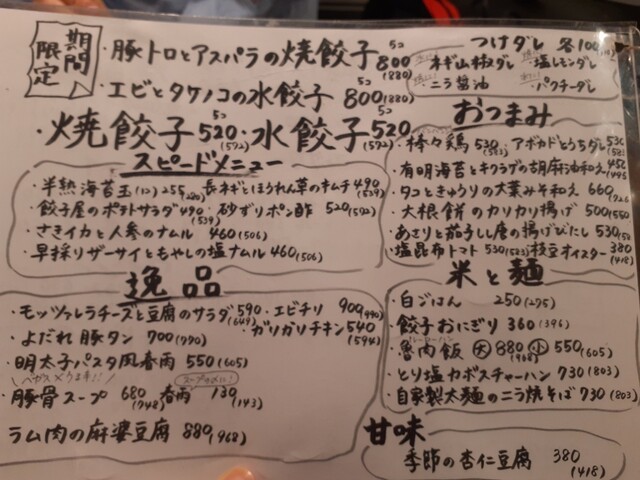 期間限定
・豚トロとアスパラの焼餃子 5コ 800 (880)
・エビとタケノコの水餃子 5コ 800 (880)
・焼餃子 5コ 520 (572) ・水餃子 5コ 520 (572)
つけダレ 各100
・ネギ山椒ダレ ・塩レモンダレ
・ニラ醤油 ・パクチーダレ
スピードメニュー
・半熟海苔玉(1コ) 255 (280) ・長ネギとほうれん草のキムチ 490 (539)
・餃子屋のポテトサラダ 490 (539) ・砂ずりポン酢 520 (572)
・さきイカと人参のナムル 460 (506)
・早採りザーサイともやしの塩ナムル 460 (506)
おつまみ
・棒々鶏 530 (583) ・アボカドとうちダレ 530
・有明海苔とキクラゲの胡麻油和え 450 (495
・タコときゅうりの大葉みそ和え 660
・大根餅のカリカリ揚げ 500 (550)
・あさりと茄子しし唐の揚げびたし 530
・塩昆布トマト 530 (583) ・枝豆オイスター 380 (418)
逸品
・モッツァレラチーズと豆腐のサラダ 590 (649) ・エビチリ 900 (990)
・よだれ豚タン 700 (770) ・ガリガリチキン 540 (594)
・明太子パスタ風春雨 550 (605)
・豚骨スープ 680 (748) 春雨 130 (143)
ラム肉の麻婆豆腐 880 (968)
米と麺
・白ごはん 250 (275)
・餃子おにぎり 360 (396)
・魯肉飯 大 880 (968) 小 550 (605)
・とり塩カボスチャーハン 730 (803)
・自家製太麺のニラ焼そば 730 (803)
甘味
季節の杏仁豆腐 380 (418)